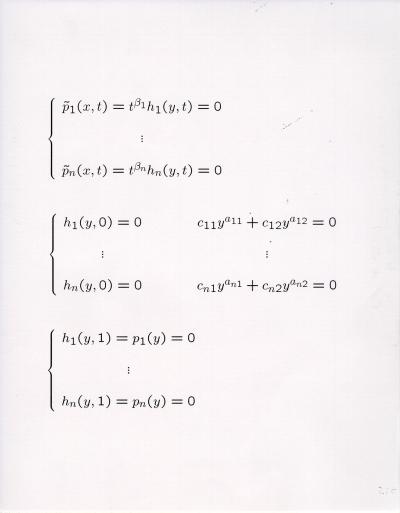 p̃₁(x, t) = t^{β₁}h₁(y, t) = 0
⋮
p̃ₙ(x, t) = t^{βₙ}hₙ(y, t) = 0
h₁(y, 0) = 0 c₁₁y^{a₁₁} + c₁₂y^{a₁₂} = 0
⋮ ⋮
hₙ(y, 0) = 0 cₙ₁y^{aₙ₁} + cₙ₂y^{aₙ₂} = 0
h₁(y, 1) = p₁(y) = 0
⋮
hₙ(y, 1) = pₙ(y) = 0